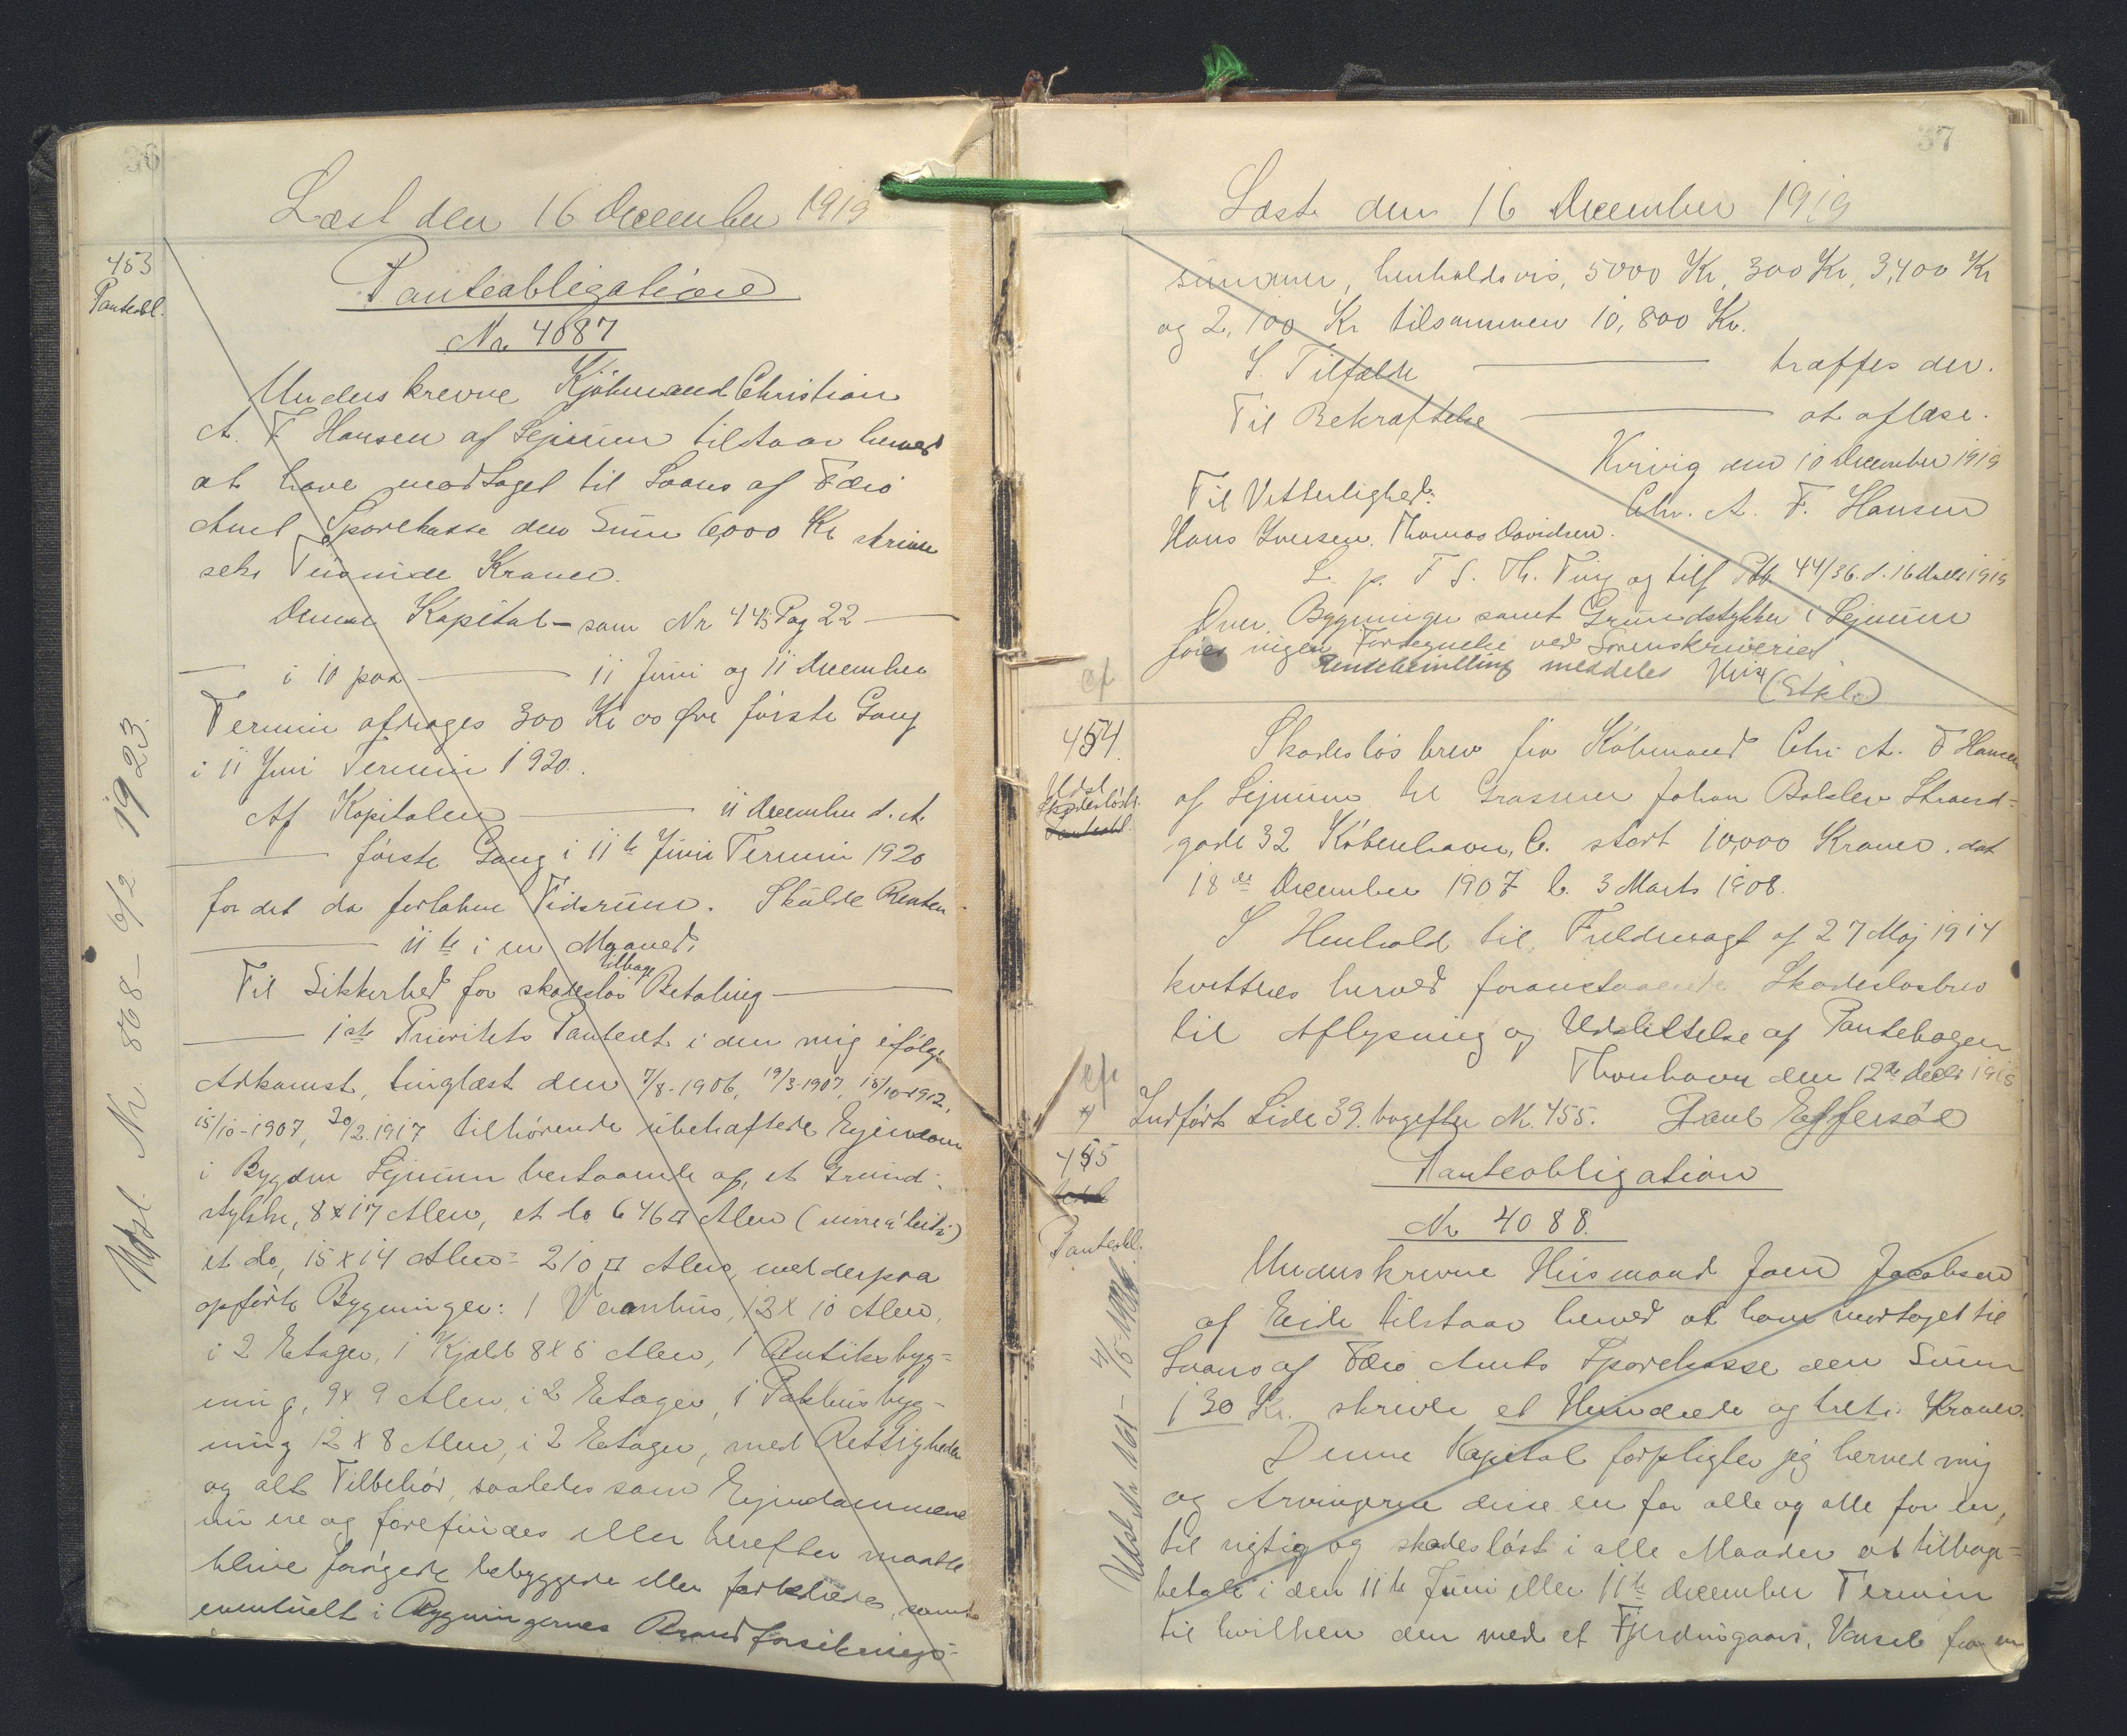 36
Læst den 16 December 1919
453
Panteobl.
Panteobligation
Nr 4087
Underskrevne Kjøbmand Christian
A. F. Hansen af Sejnum tilstaar herved
at have modtaget til Laans af Færø
Amts Sparekasse den Sum 6,000 Kr skrive
seks Tusinde Kroner.
Denne Kapital - som Nr 445 Pag 22 —
— i 10 paa — 11 Juni og 11 December
Termin afdrages 300 Kr 00 Øre første Gang
i 11 Juni Termin 1920.
Af Kapitalen — 11 December d. A.
— første Gang i 11te Juni Termin 1920
for det da forløbne Tidsrum. Skulde Renten
— 11te i en Maaned.
Til Sikkerhed for skadesløs tilbage Betaling —
— 1ste Prioritets Panteret i den mig ifølge
Adkomst, tinglæst den 7/8-1906, 19/3-1907, 15/10-1912,
15/10-1907, 20/2 1917 tilhørende ubehæftede Ejendom
i Bygden Sejnum bestaaende af, et Grund-
stykke, 8 x 17 Alen, et do 646 □ Alen
et do, 15 x 14 Alen = 210 □ Alen, med derpaa
opførte Bygninger: 1 Vaanhus, 12 x 10 Alen,
i 2 Etager, 1 Kjæld 8 x 5 Alen, 1 Butiksbyg=
ning, 9 x 9 Alen i 2 Etager, 1 Pakhusbyg=
ning 12 x 8 Alen, i 2 Etager, med Rettigheder
og alt Tilbehør, saaledes som Ejendommene
nu ere og forefindes eller herefter maatte
blive forøgede bebyggede eller forbedrede, samt
eventuelt i Bygningernes Brandforsikrings-
Udsl. Nr. 868 - 6/2 1923.
37
Læst den 16 December 1919
summer, henholdsvis, 5000 Kr, 300 Kr, 3,400 Kr
og 2,100 Kr tilsammen 10,800 Kr.
I Tilfælde — træffes der.
Til Bekræftelse — at aflæse.
Kvivig den 10 December 1919
Til Vitterlighed: Chr. A. F. Hansen
Hans Iversen. Thomas Davidsen.
L. p. F S. Th. Ting og tilf Ptb 44/36. d. 16 Decbr 1919
Over Bygninger samt Grundstykker i Sejnum
føres ingen Fortegnelse ved Sorenskriveriet
meddeles
454.
Udsl
Skadesløsb.
Panteobl.
Skadesløsbrev fra Købmand Chr. A. F Hansen
af Sejnum til Grosserer Johan Balslev Strand=
gade 32 København, C. stort 10,000 Kroner. dat
18de December 1907 l. 3 Marts 1908.
I Henhold til Fuldmagt af 27 Maj 1914
kvitteres herved foranstaaende Skadesløsbrev
til Aflysning og Udslettelse af Pantebogen
Thorshavn den 12te Decbr 1918
Indført Side 39. bagefter Nr. 455. Poul Effersøe
455
Panteobl.
Panteobligation
Nr 4088.
Underskrevne Husmand Joen Jacobsen
af Eide tilstaar herved at have modtaget til
Laans af Færø Amts Sparekasse den Sum
130 Kr. skrive et Hundrede og treti Kroner.
Denne Kapital forpligter jeg herved mig
og Arvingerne disse en for alle og alle for en,
til rigtig og skadesløst i alle Maader at tilbage=
betale i den 11te Juni eller 11te December Termin
til hvilken den med et Fjerdingaars Varsel fra en
Udsl Nr 1161 - 4/5-1926.